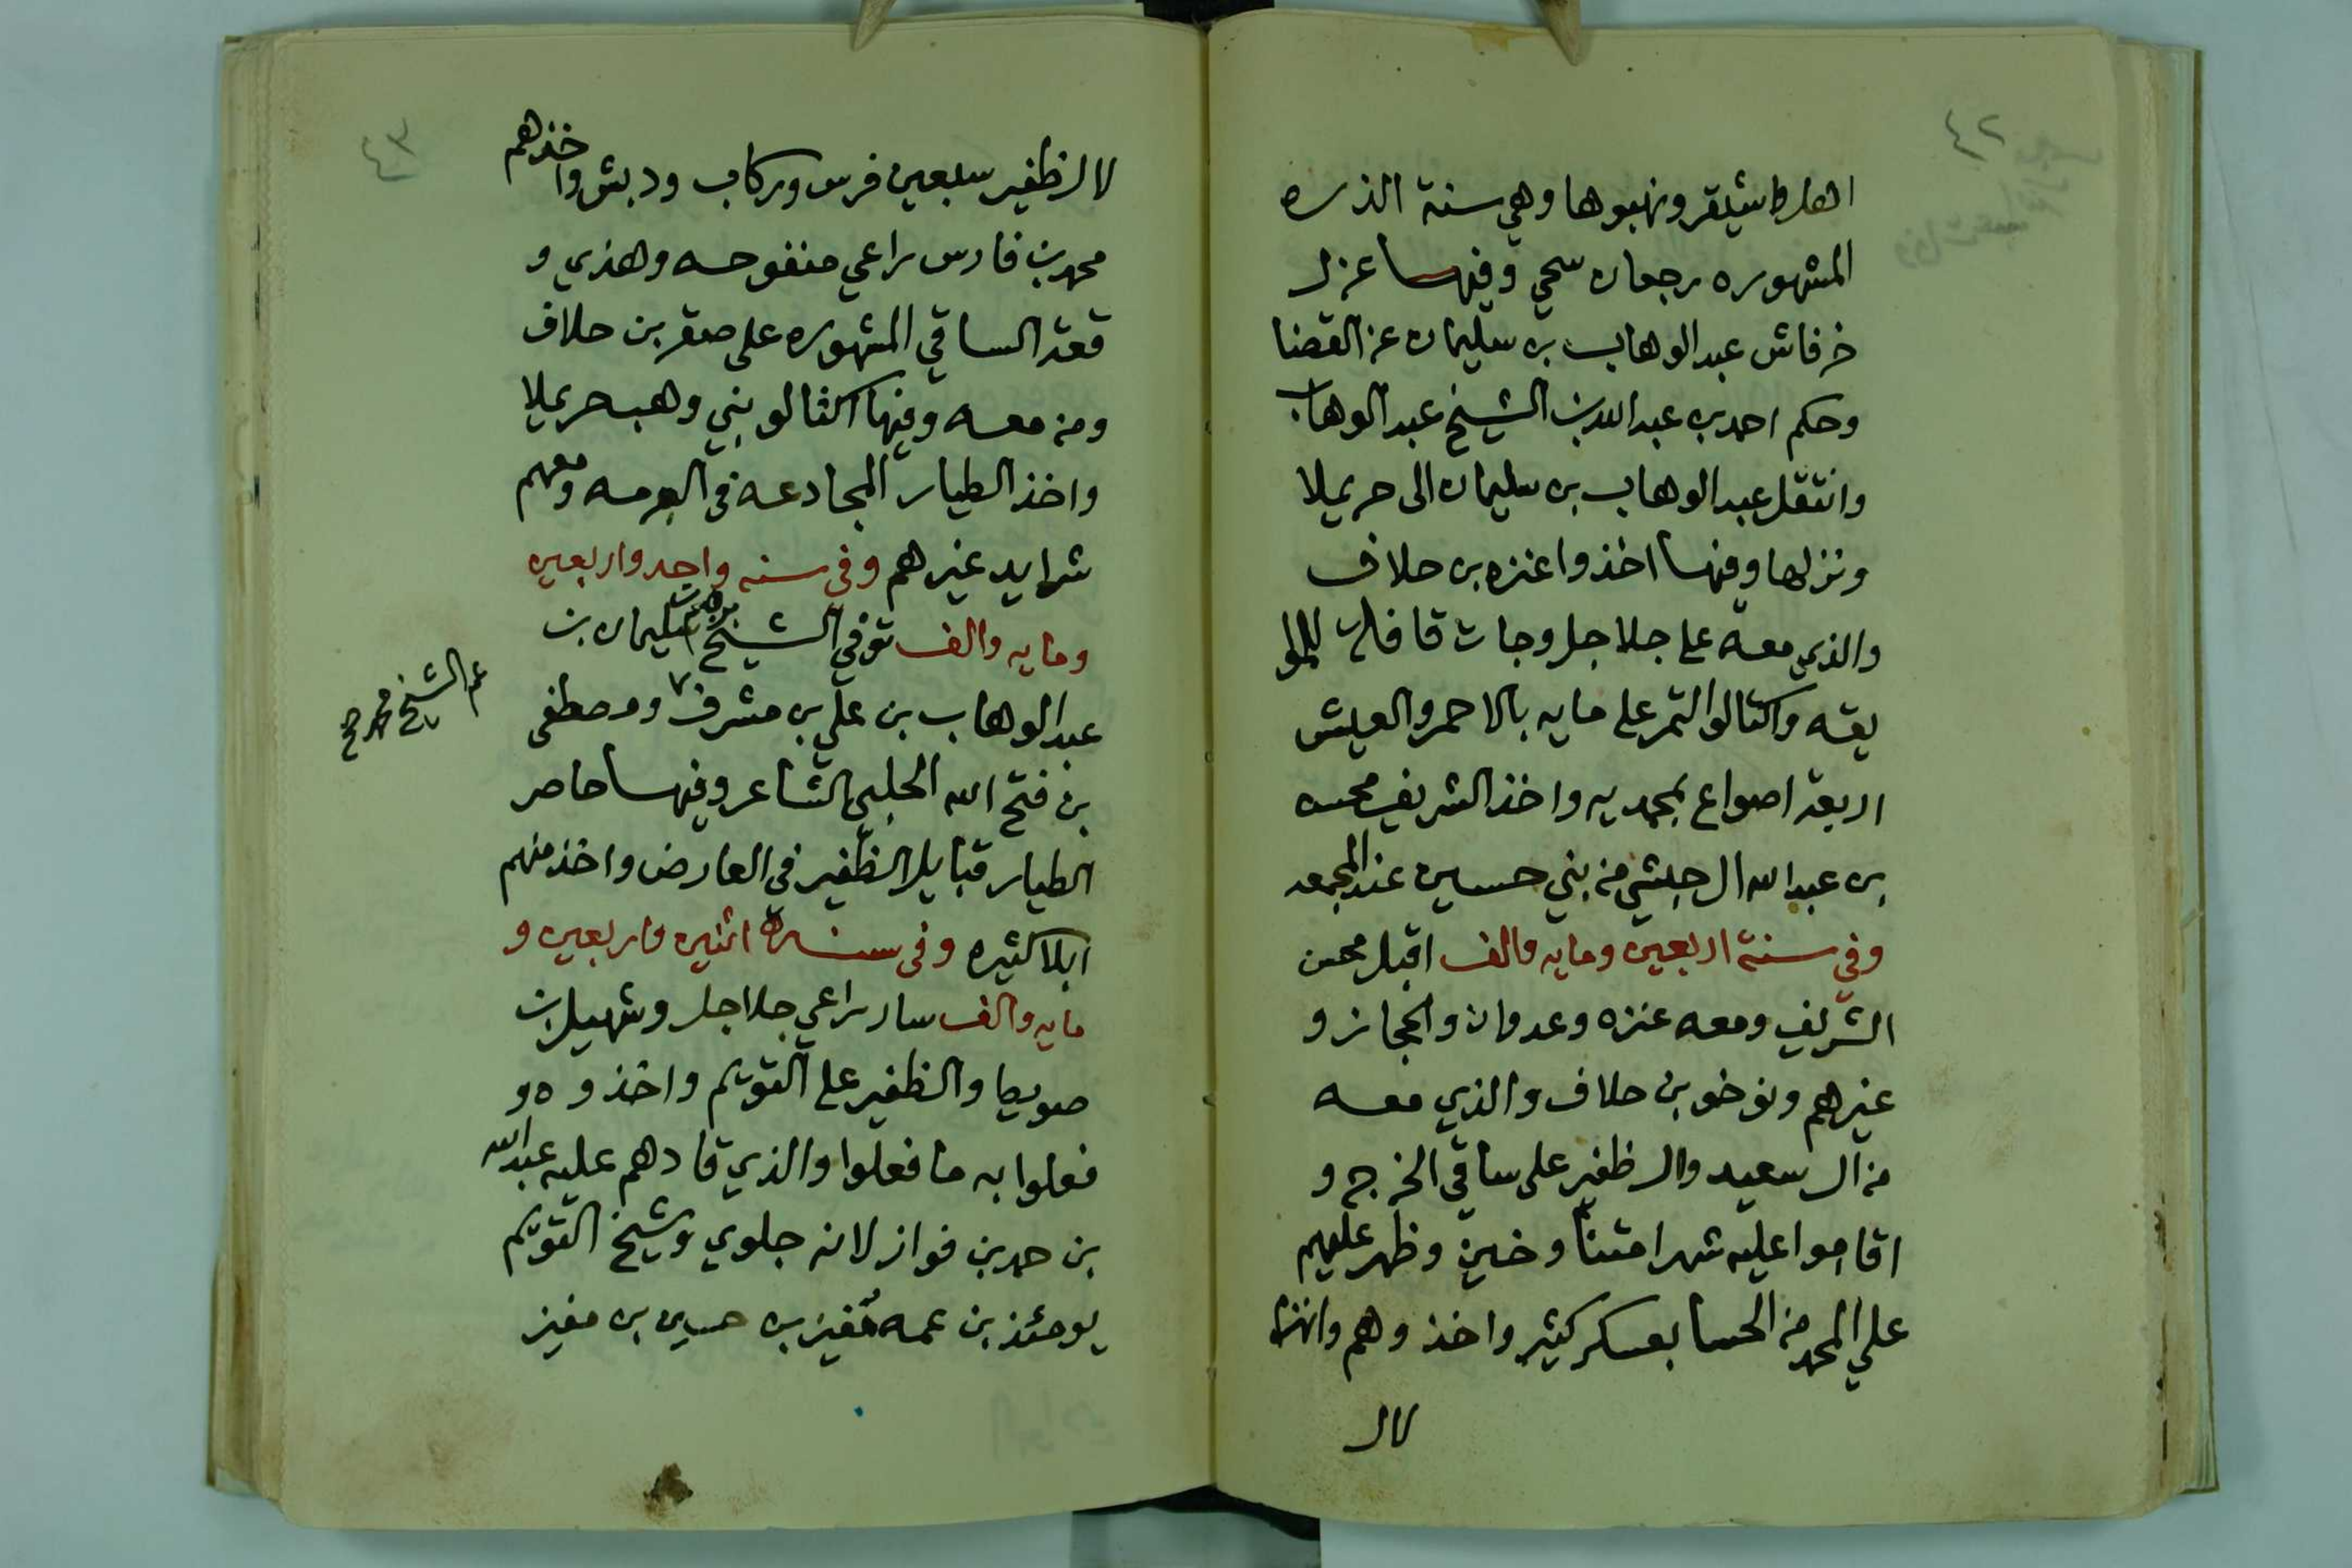 ٤٢
اهل اشيقر ونهبوها وهي سنة الذره
المشهوره رجعان سحي وفيها عزل
خرفاش عبدالوهاب بن سليمان عن القضا
وحكم احمد بن عبدالله بن الشيخ عبدالوهاب
وانتقل عبدالوهاب بن سليمان الى حريملا
ونزلها وفيها اخذوا عنزه بن حلاف
والذي معه على جلاجل وجات قافلة
يقه واكتالوا التمر على مايه بالاحمر والعيش
اربعة اصواع بمحمديه واخذ الشريف محسن
بن عبدالله ال حبشي من بني حسين عند المجمعه
وفي سنة اربعين ومايه والف اقبل محسن
الشريف ومعه عنزه وعدوان والحجاز و
غيرهم ونوخو بن حلاف والذي معه
من ال سعيد وال ظفير على ساقي الخرج و
اقاموا عليه شهرا متناوخين وظهر عليهم
علي المحمد من الحسا بعسكر كثير واخذوهم وانهزا
لال
٤٣
لال ظفير سبعين فرس وركاب ودبش واخذهم
محمد بن فارس راعي منفوحه وهذي و
قعة الساقي المشهوره على صقر بن حلاف
ومن معه وفيها اكتالو بني وهب حريملا
واخذ الطيار المجادعه في العرمه ومعهم
شرايد غيرهم وفي سنه واحد واربعين
ومايه والف توفي الشيخ ابراهيم بن سليمان بن
عبدالوهاب بن علي بن مشرف ومصطفى
عم الشيخ محمد رح
بن فتح الله الحلبي الشاعر وفيها حاصر
الطيار قبايل الظفير في العارض واخذ منهم
ابلا كثيره وفي سنة اثنين واربعين و
مايه والف سار راعي جلاجل وشهيل بن
صويط والظفير على التويم واخذوه و
فعلوا به ما فعلوا والذي قادهم عليه عبدالله
بن حمد بن فواز لانه جلوي وشيخ التويم
يومئذ بن عمه مفيز بن حسين بن مفيز